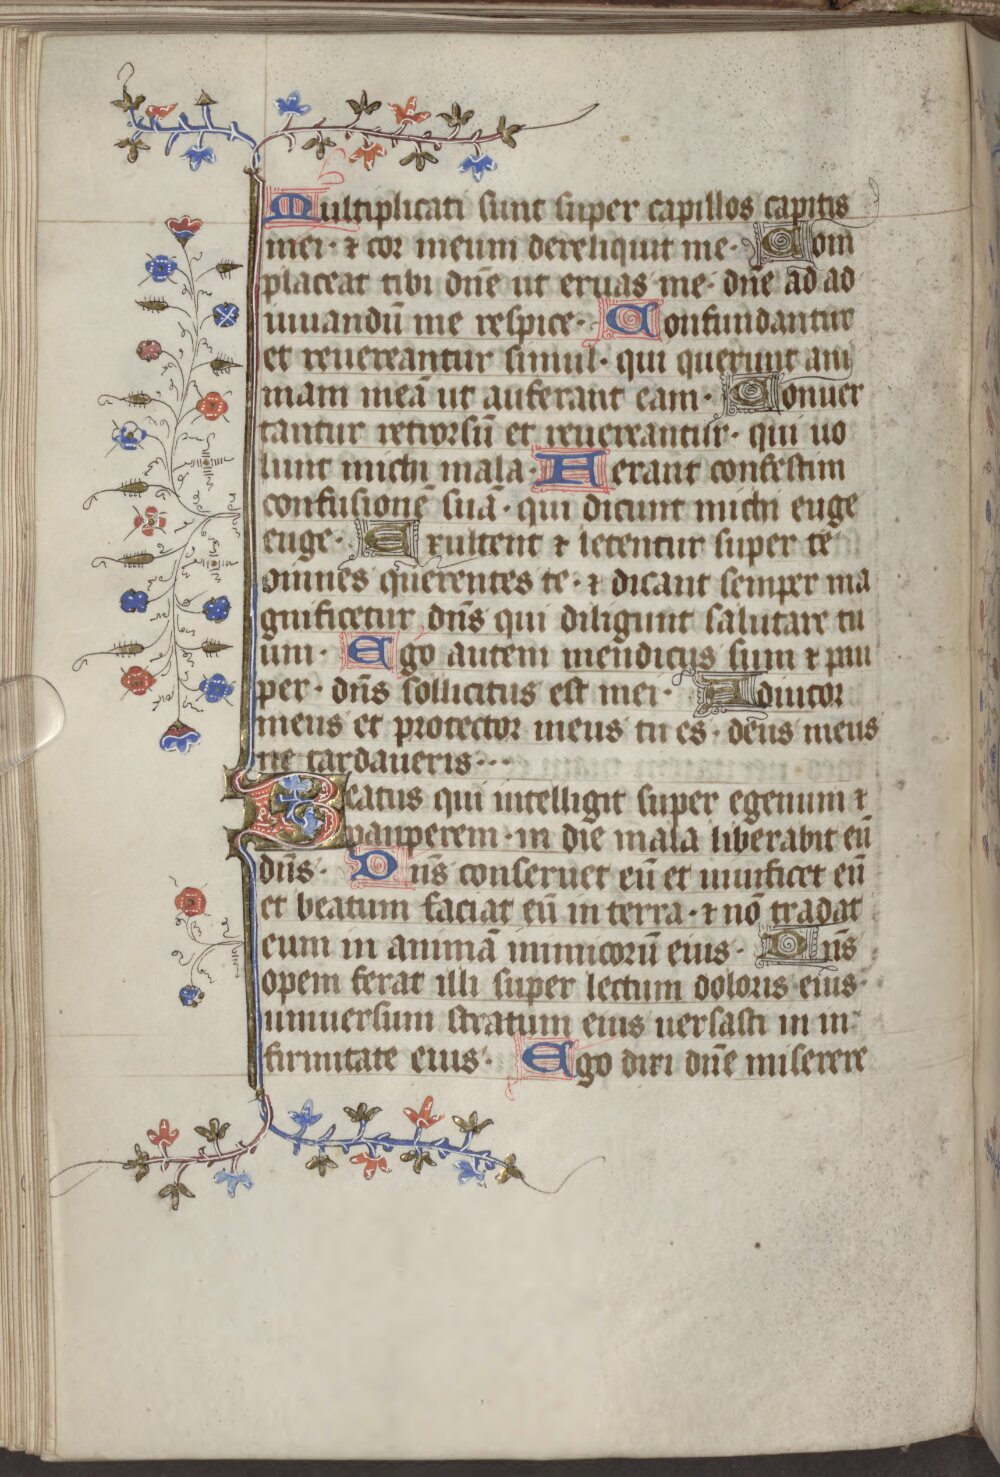 Multiplicati sunt super capillos capitis
mei · ⁊ cor meum dereliquit me · Com
placeat tibi dñe ut eruas me · dñe ad ad
iuuandū me respice · Confundantur
et reuereantur simul · qui querunt ani
mam meā ut auferant eam · Conuer
tantur retrorsū et reuereantur · qui uo
lunt michi mala · Ferant confestim
confusionē suā · qui dicunt michi euge
euge · Exultent ⁊ letentur super te
omnes querentes te · ⁊ dicant semper ma
gnificetur dñs qui diligunt salutare tu
um · Ego autem mendicus sum ⁊ pau
per · dñs sollicitus est mei · Adiutor
meus et protector meus tu es · deus meus
ne tardaueris ···
Beatus qui intelligit super egenum ⁊
pauperem · in die mala liberabit eū
dñs · Dñs conseruet eū et uiuificet eū
et beatum faciat eū in terra · ⁊ nō tradat
eum in animā inimicorū eius · Dñs
opem ferat illi super lectum doloris eius ·
uniuersum stratum eius uersasti in in
firmitate eius · Ego dixi dñe miserere